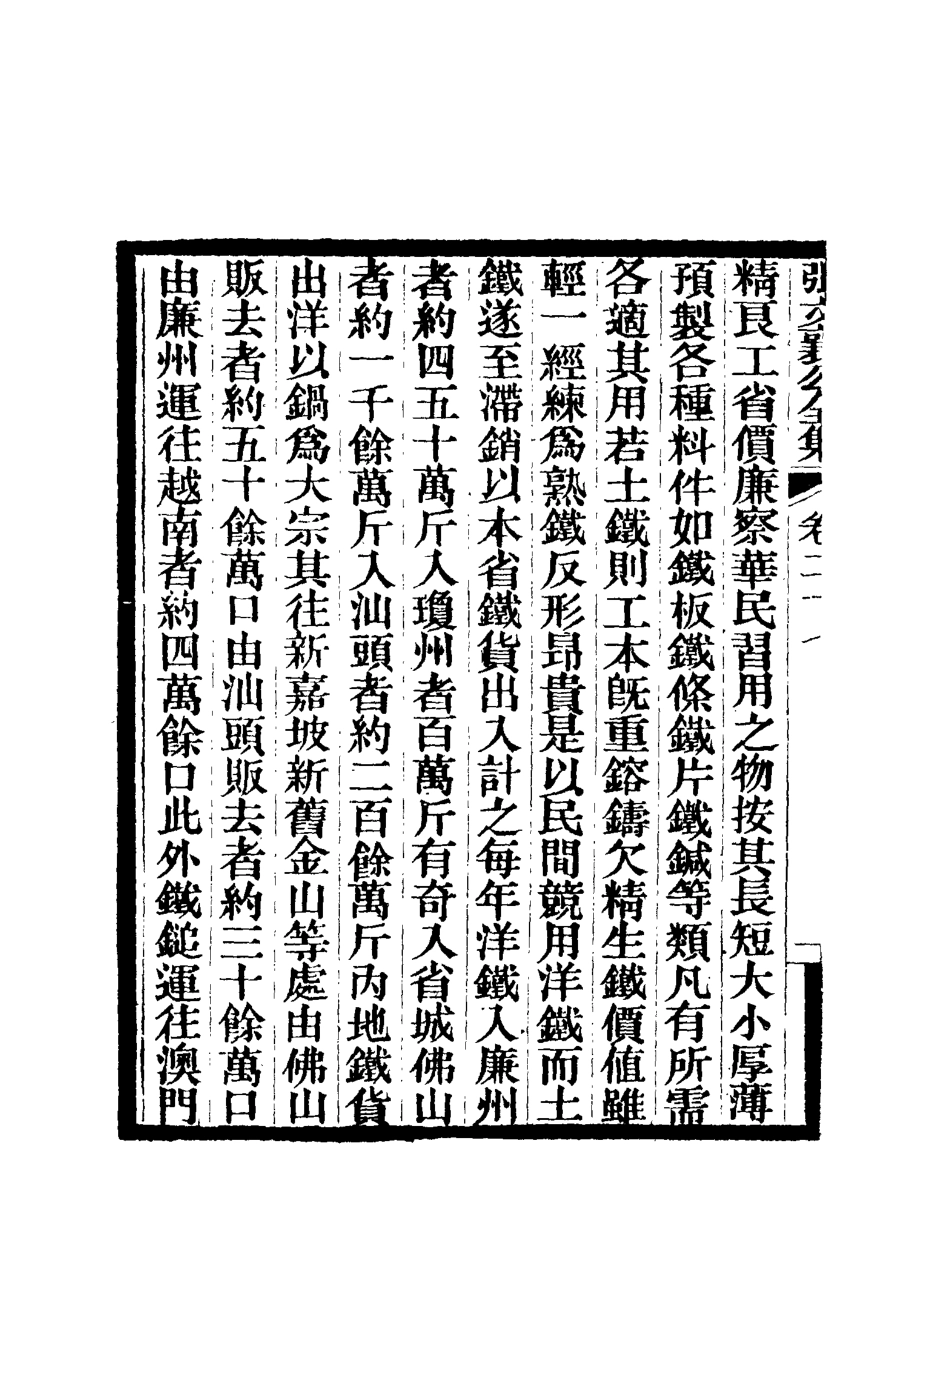 張文襄公全集 卷二
精良工省價廉察華民習用之物按其長短大小厚薄
預製各種料件如鐵板鐵條鐵片鐵鍼等類凡有所需
各適其用若土鐵則工本旣重鎔鑄欠精生鐵價值雖
輕一經練爲熟鐵反形昂貴是以民間競用洋鐵而土
鐵遂至滯銷以本省鐵貨出入計之每年洋鐵入廉州
者約四五十萬斤入瓊州者百萬斤有奇入省城佛山
者約一千餘萬斤入汕頭者約二百餘萬斤內地鐵貨
出洋以鍋爲大宗其往新嘉坡新舊金山等處由佛山
販去者約五十餘萬口由汕頭販去者約三十餘萬口
由廉州運往越南者約四萬餘口此外鐵鎚運往澳門